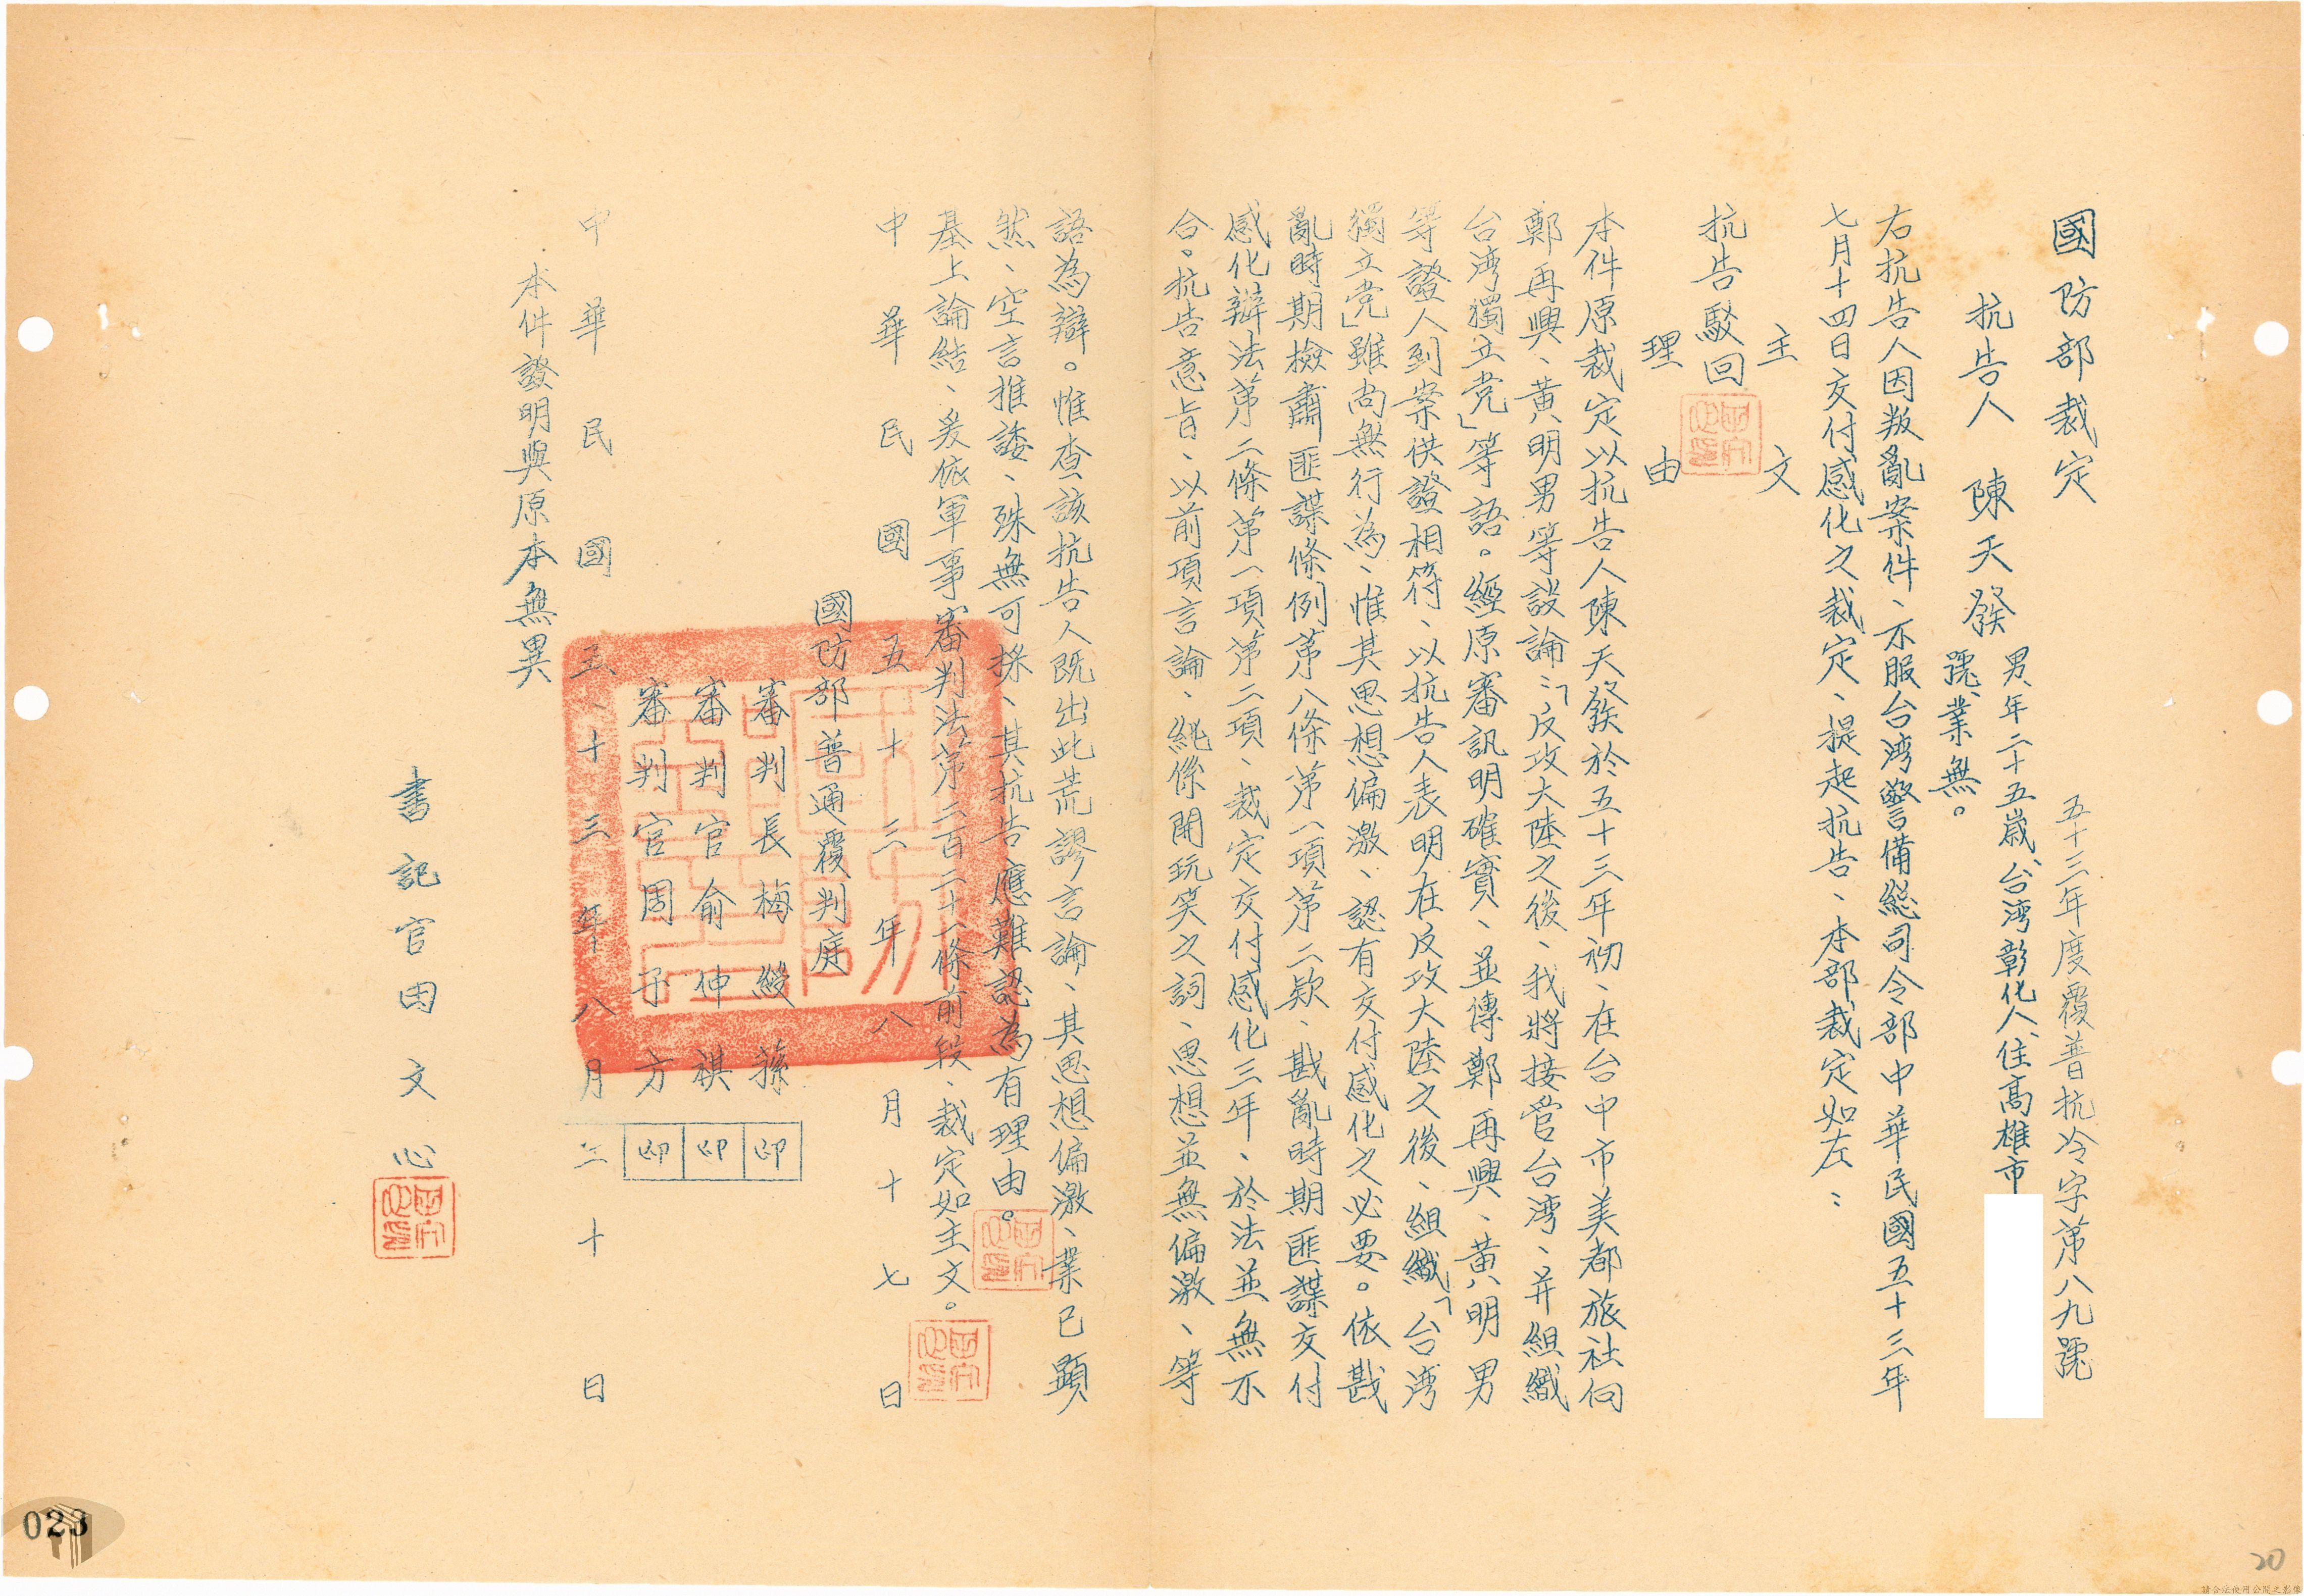 國防部裁定
五十三年度覆普抗冷字第八九號
抗告人 陳天發 男、年二十五歲、台湾彰化人、住高雄市
號、業無。
右抗告人因叛亂案件、不服台湾警備總司令部中華民國五十三年
七月十四日交付感化之裁定、提起抗告、本部裁定如左：
主文
抗告駁回
理由
本件原裁定以抗告人陳天發於五十三年初、在台中市美都旅社向
鄭再興、黃明男等談論：「反攻大陸之後、我將接管台湾、并組織
台湾獨立党」等語。經原審訊明確實、並傳鄭再興、黃明男
等證人到案供證相符、以抗告人表明在反攻大陸之後、組織「台湾
獨立党」雖尚無行為、惟其思想偏激、認有交付感化之必要。依戡
亂時期檢肅匪諜條例第八條第一項第二款、戡亂時期匪諜交付
感化辦法第二條第一項第二項、裁定交付感化三年、於法並無不
合。抗告意旨、以前項言論、純係開玩笑之詞、思想並無偏激、等
語為辯。惟查該抗告人既出此荒謬言論、其思想偏激、業已顯
然、空言推諉、殊無可採、其抗告應難認為有理由。
基上論結、爰依軍事審判法第二百二十一條前段、裁定如主文。
中華民國五十三年八月十七日
國防部普通覆判庭
審判長 梅綬蓀 印
審判官 俞伸祺 印
審判官 周予方 印
中華民國五十三年八月二十日
本件證明與原本無異
書記官 田文心
023
20
請合法使用公開之影像